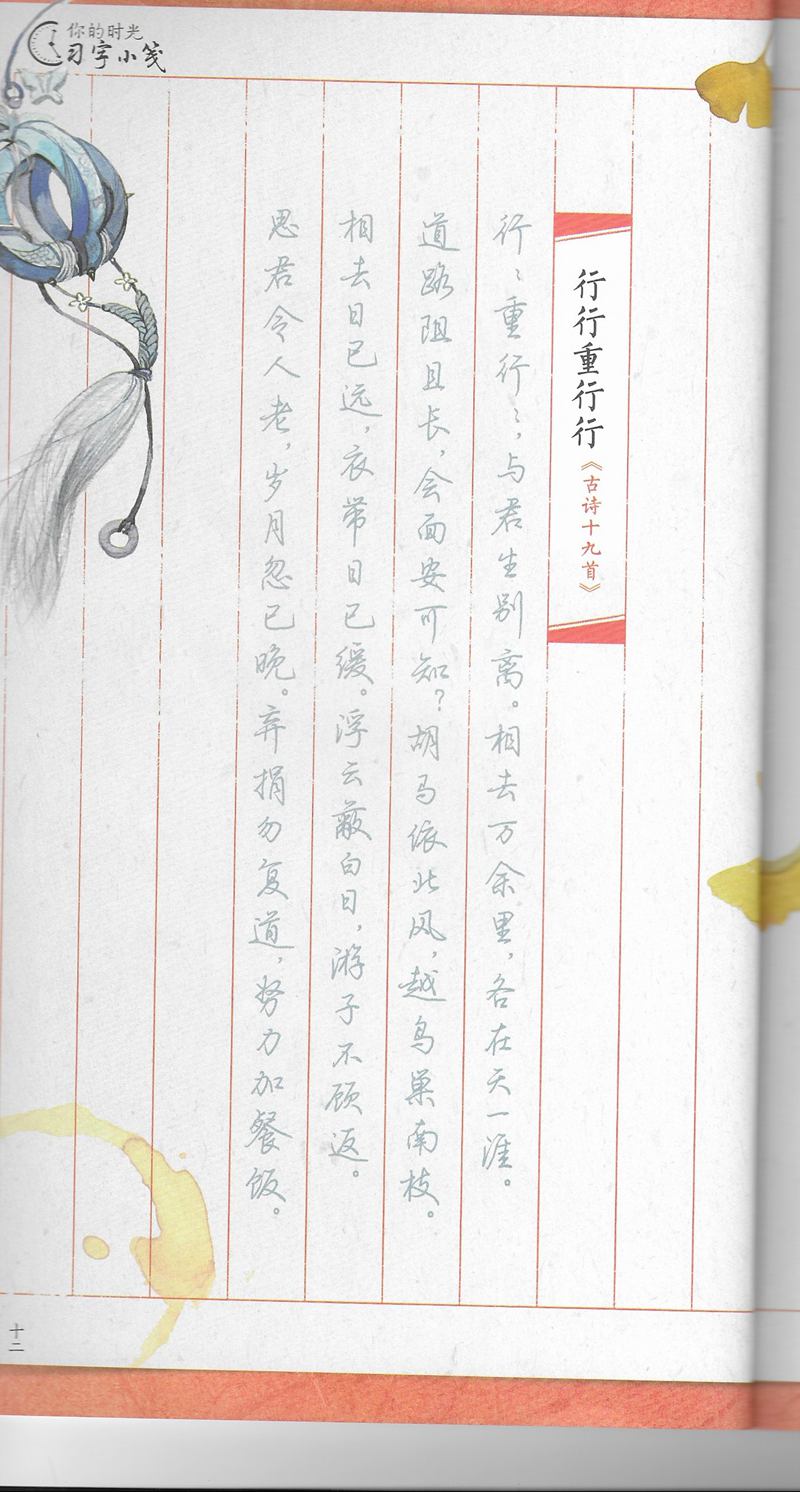 你的时光
习字小笺
行行重行行《古诗十九首》
行〻重行〻，与君生别离。相去万余里，各在天一涯。
道路阻且长，会面安可知？胡马依北风，越鸟巢南枝。
相去日已远，衣带日已缓。浮云蔽白日，游子不顾返。
思君令人老，岁月忽已晚。弃捐勿复道，努力加餐饭。
十二